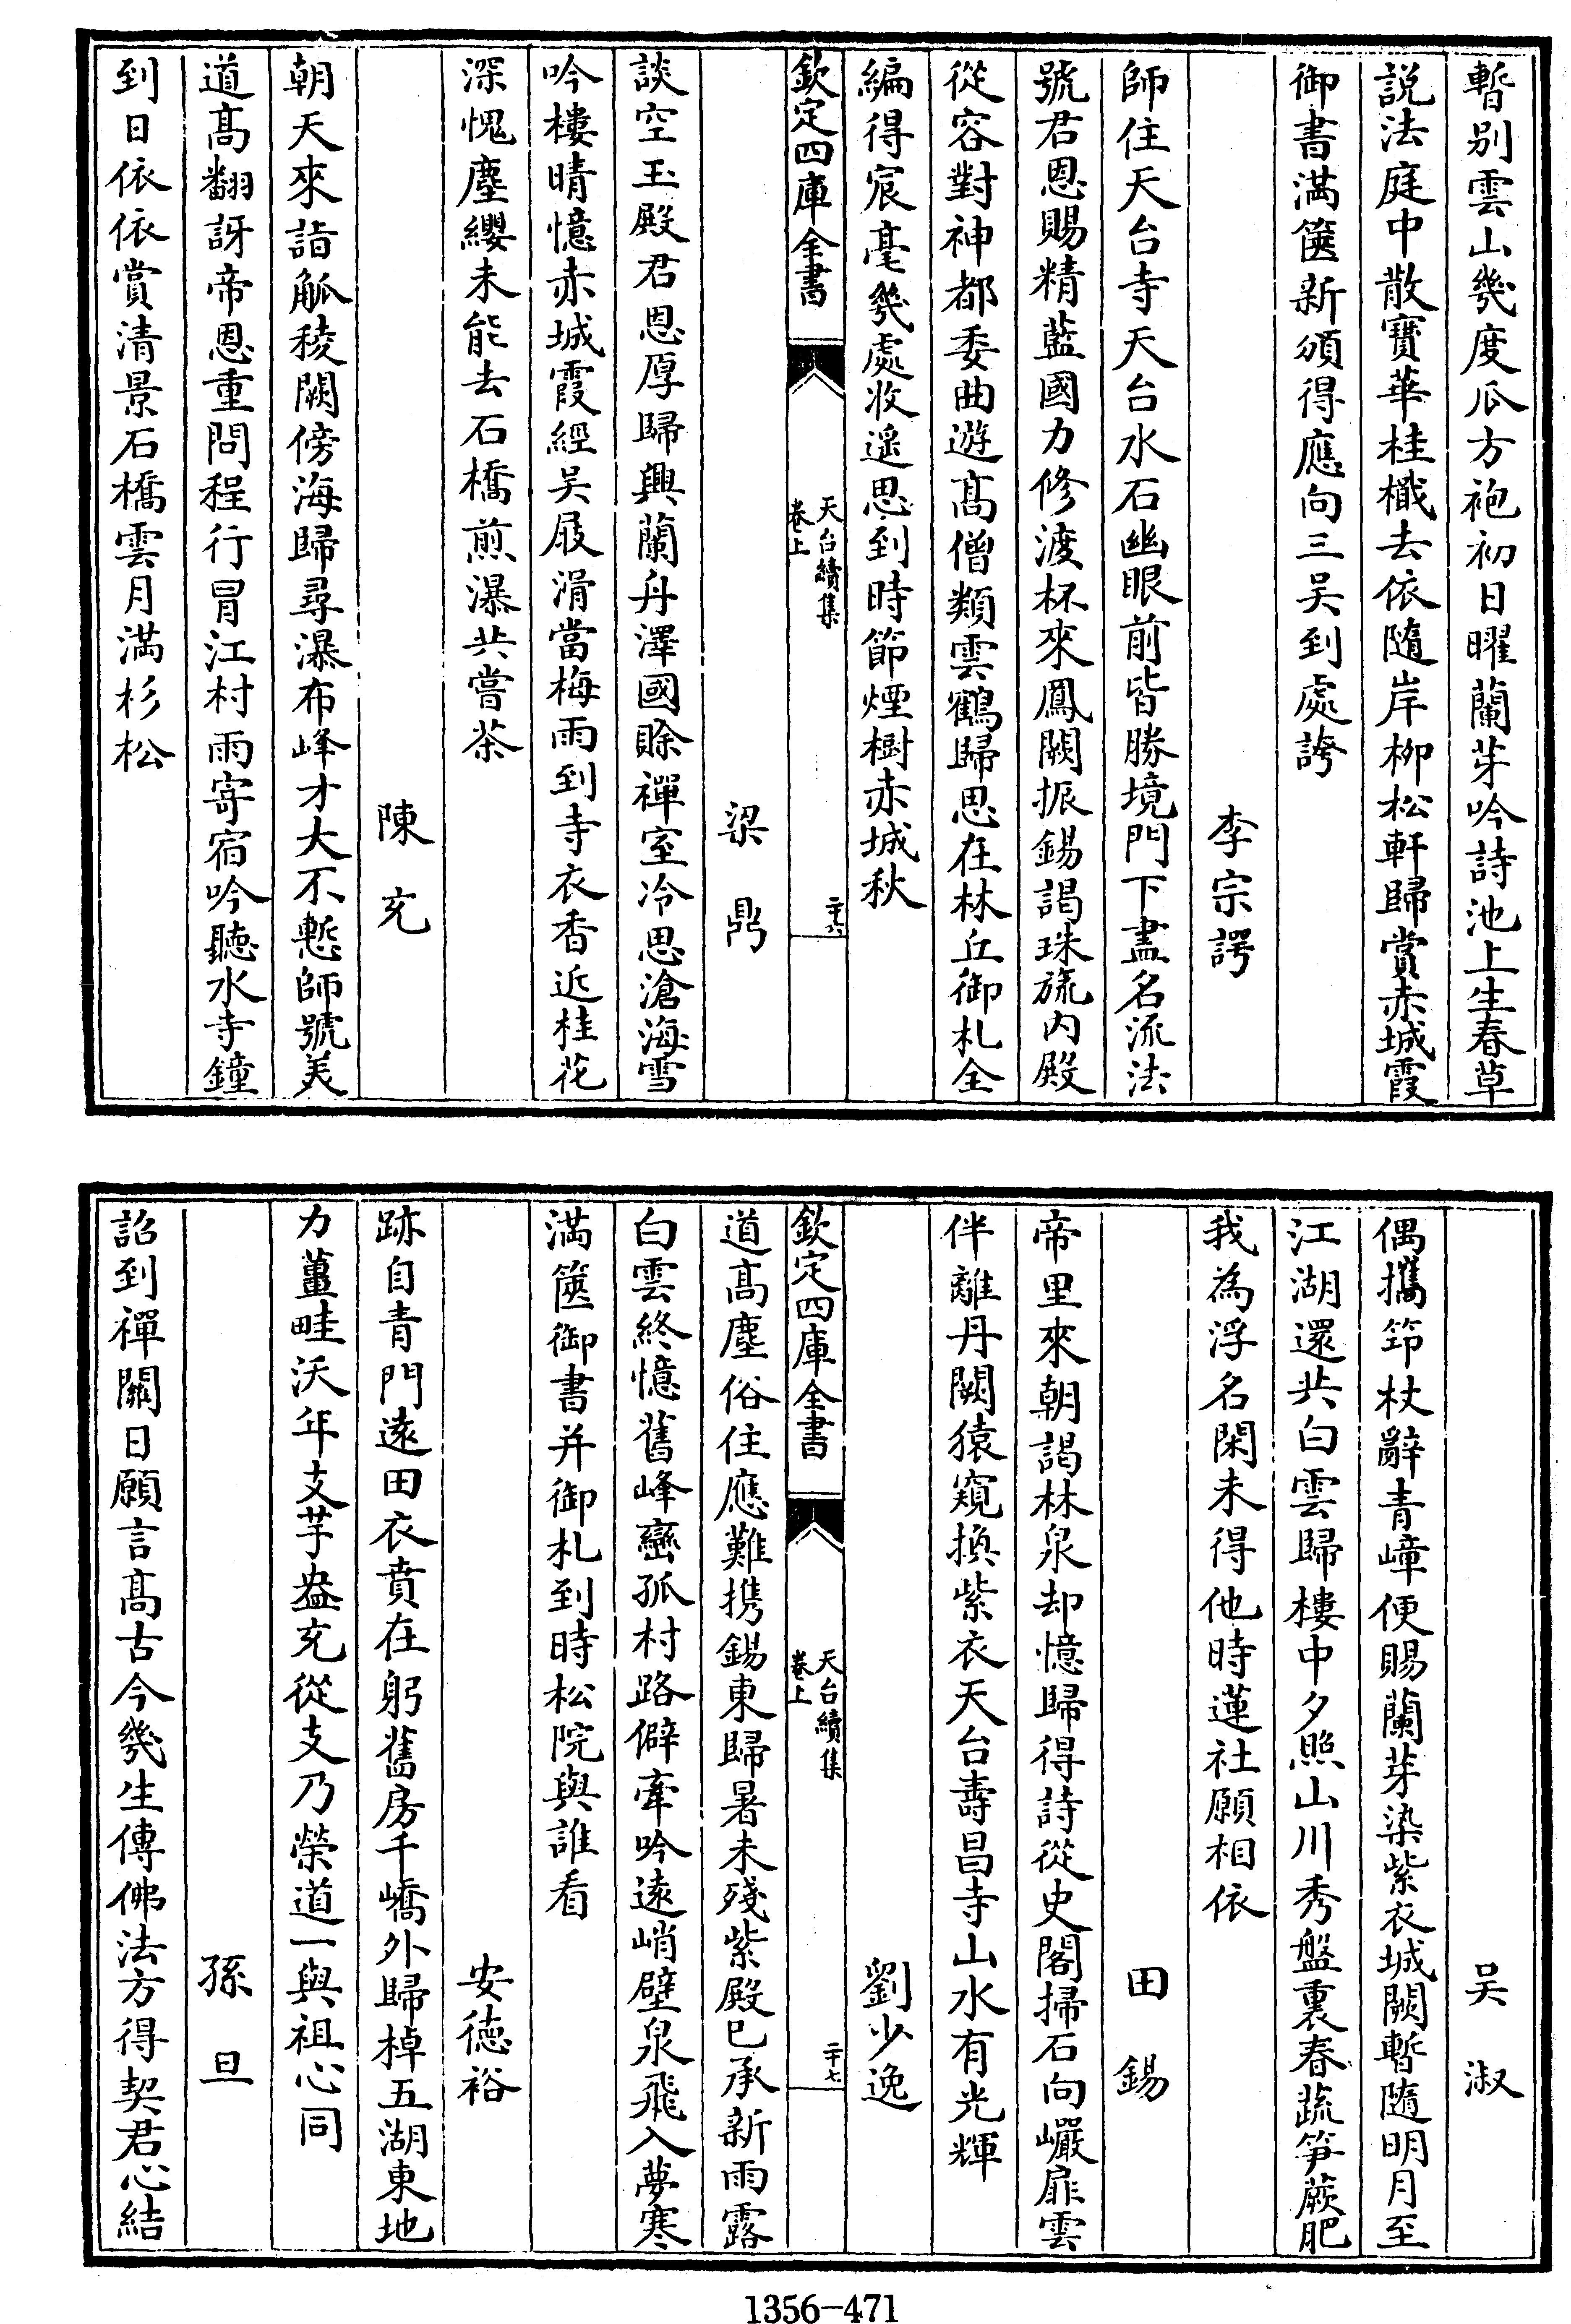 暫别雲山幾度瓜方袍初日曜蘭芽吟詩池上生春草
説法庭中散寶華桂檝去依隨岸柳松軒歸賞赤城霞
御書滿篋新頒得應向三吴到處誇
李宗諤
師住天台寺天台水石幽眼前皆勝境門下盡名流法
號君恩賜精藍國力修渡杯來鳳闕振錫謁珠旒内殿
從容對神都委曲遊髙僧類雲鶴歸思在林丘御札全
編得宸毫幾處收遥思到時節煙樹赤城秋
欽定四庫全書
天台續集
卷上
二十六
梁鼎
談空玉殿君恩厚歸興蘭舟澤國賒禪室冷思滄海雪
吟樓晴憶赤城霞經吴屐滑當梅雨到寺衣香近桂花
深愧塵纓未能去石橋煎瀑共嘗茶
陳充
朝天來詣觚稜闕傍海歸尋瀑布峰才大不慙師號美
道髙翻訝帝恩重問程行冒江村雨寄宿吟聽水寺鐘
到日依依賞清景石橋雲月滿杉松
吴淑
偶攜筇杖辭青嶂便賜蘭芽染紫衣城闕暫隨明月至
江湖還共白雲歸樓中夕照山川秀盤裏春蔬笋蕨肥
我為浮名閑未得他時蓮社願相依
田錫
帝里來朝謁林泉却憶歸得詩從史閣掃石向巖扉雲
伴離丹闕猿窺換紫衣天台壽昌寺山水有光輝
劉少逸
欽定四庫全書
天台續集
卷上
二十七
道髙塵俗住應難携錫東歸暑未殘紫殿已承新雨露
白雲終憶舊峰巒孤村路僻牽吟遠峭壁泉飛入夢寒
滿篋御書并御札到時松院與誰看
安德裕
跡自青門遠田衣賁在躬舊房千嶠外歸棹五湖東地
力薑畦沃年支芋盎充從支乃榮道一與祖心同
孫旦
詔到禪關日願言髙古今幾生傳佛法方得契君心結
1356-471